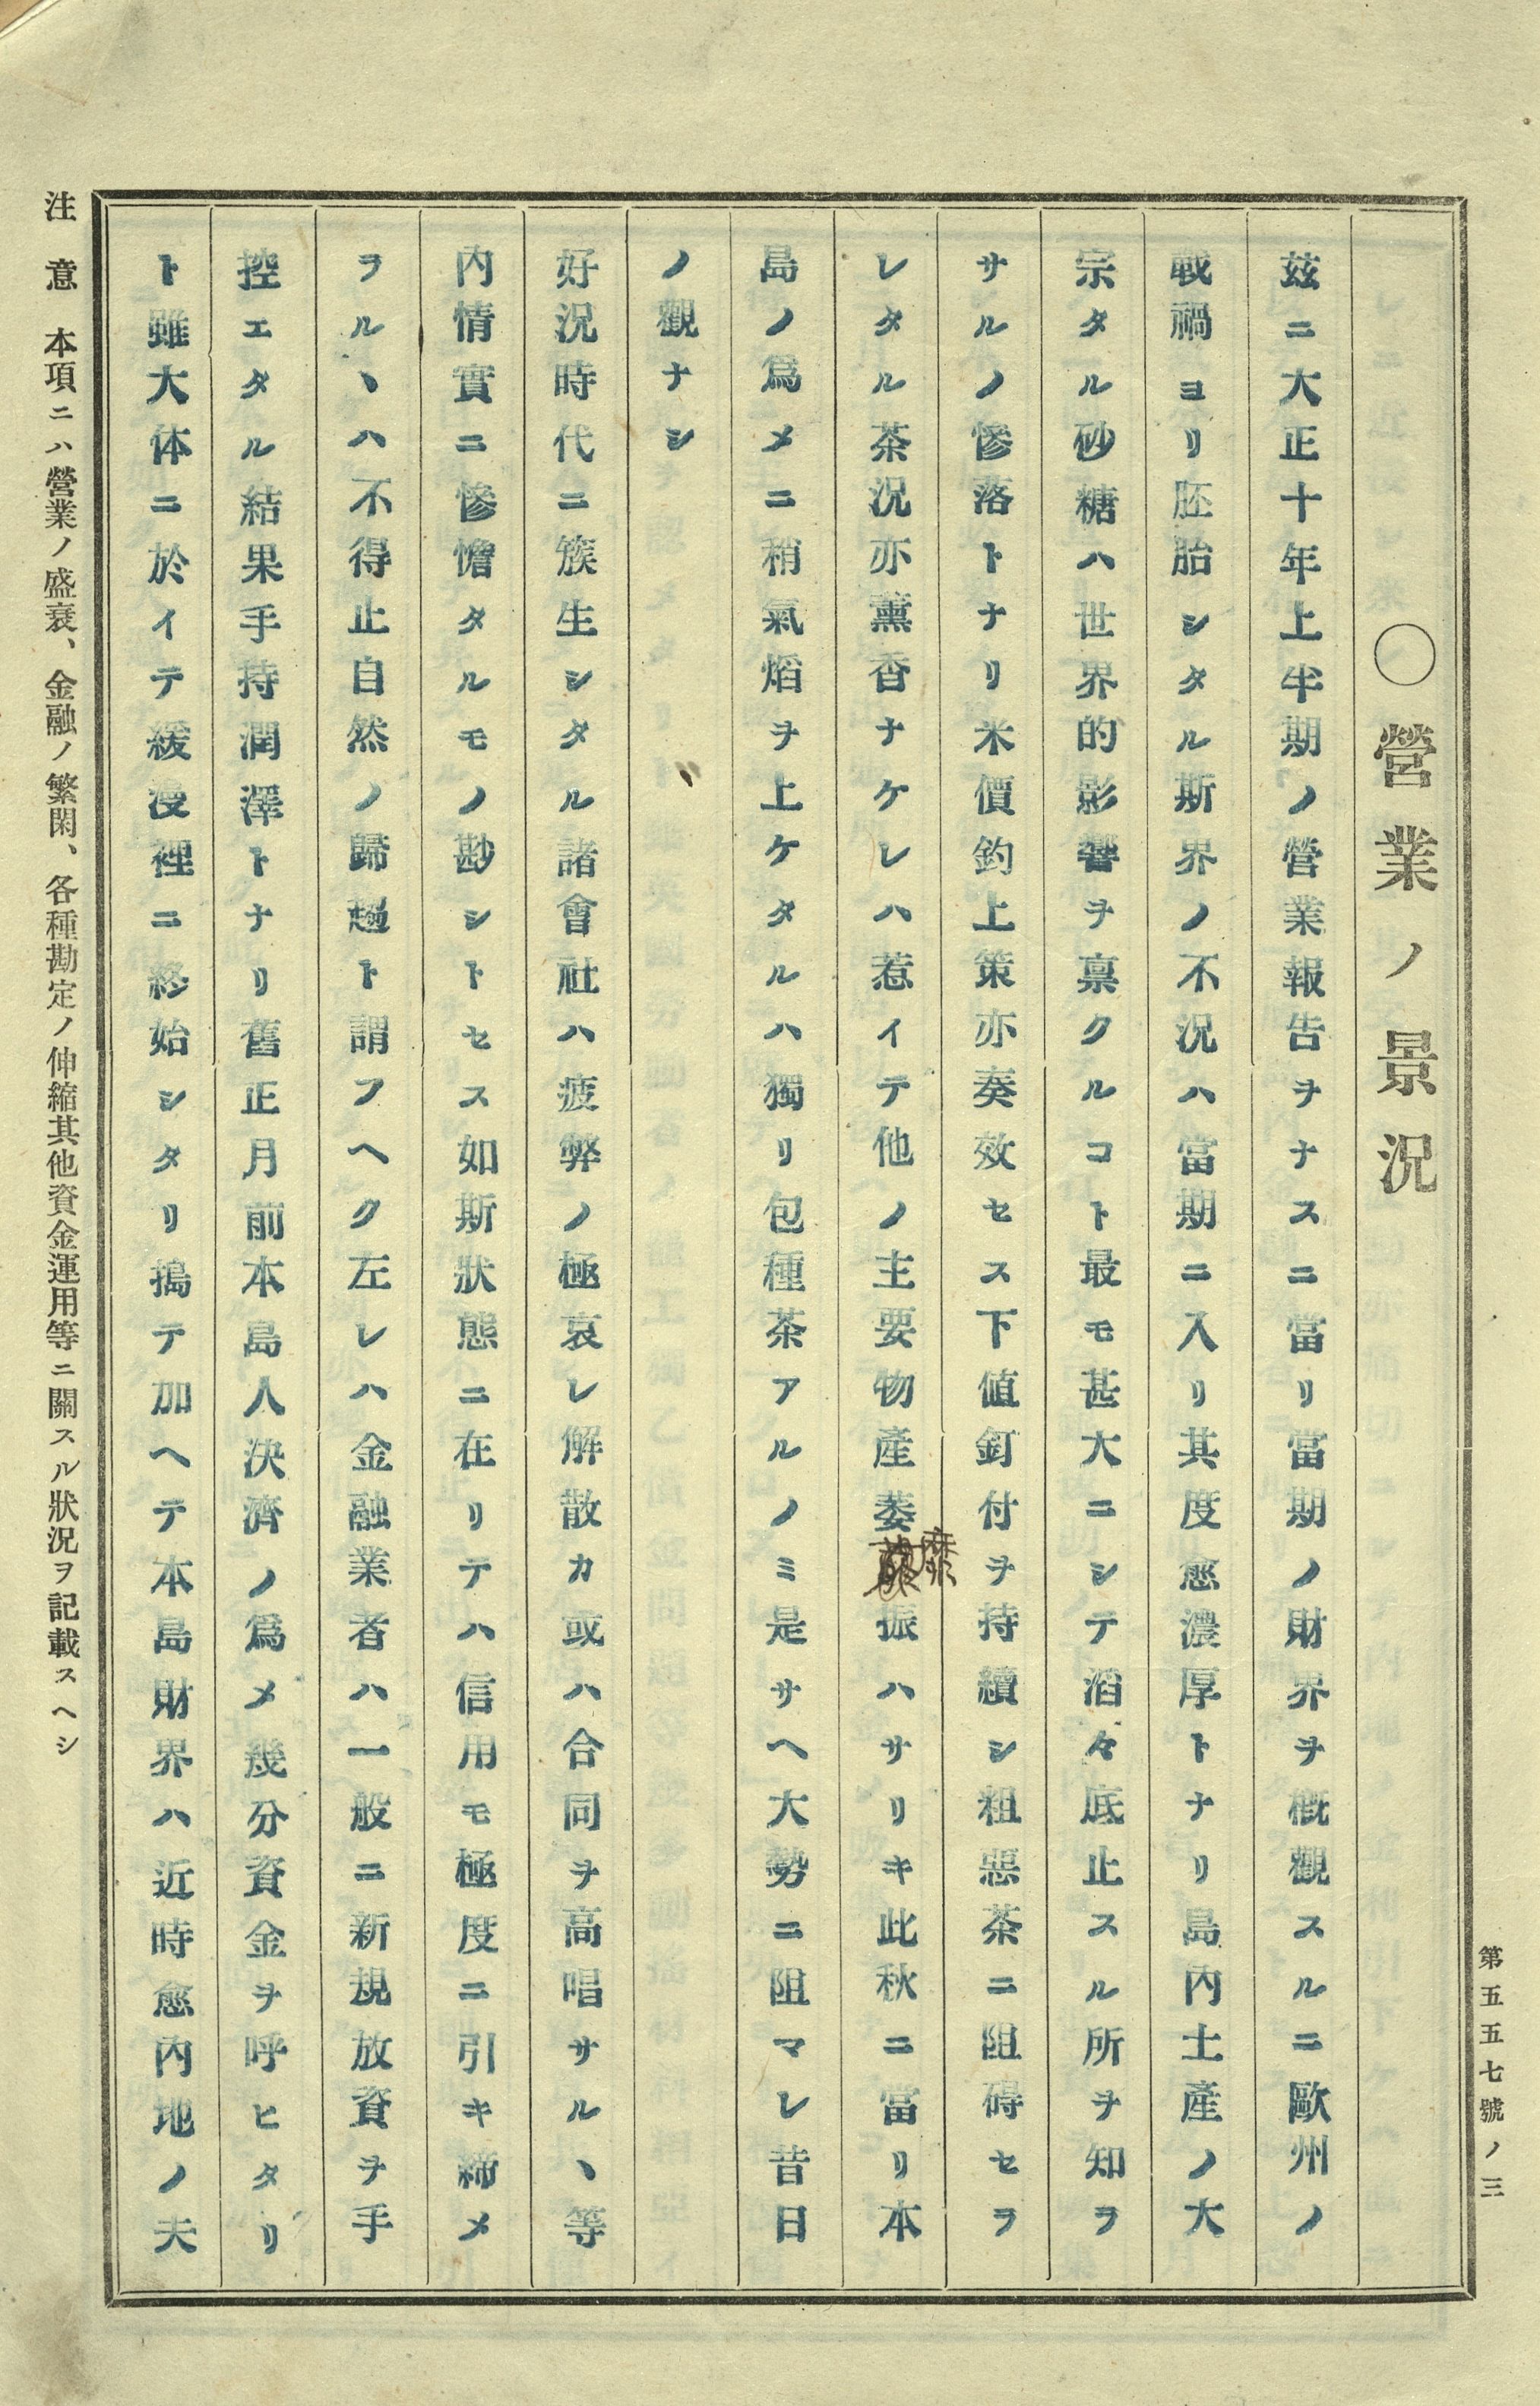 第五五七號ノ三
〇營業ノ景況
茲ニ大正十年上半期ノ營業報告ヲナスニ當リ當期ノ財界ヲ概觀スルニ歐州ノ
戰禍ヨリ胚胎シタル斯界ノ不況ハ當期ニ入リ其度愈濃厚トナリ島内土産ノ大
宗タル砂糖ハ世界的影響ヲ禀クルコト最モ甚大ニシテ滔々底止スル所ヲ知ラ
サルノ慘落トナリ米價釣上策亦奏效セス下値釘付ヲ持續シ粗惡茶ニ阻碍セラ
レタル茶況亦薰香ナケレハ惹イテ他ノ主要物產萎靡振ハサリキ此秋ニ當リ本
島ノ爲メニ稍氣焰ヲ上ケタルハ獨リ包種茶アルノミ是サヘ大勢ニ阻マレ昔日
ノ觀ナシ
好況時代ニ簇生シタル諸會社ハ疲弊ノ極哀レ解散カ或ハ合同ヲ高唱サルヽ等
内情實ニ慘憺タルモノ尠シトセス如斯狀態ニ在リテハ信用モ極度ニ引キ締メ
ラルヽハ不得止自然ノ歸趨ト謂フヘク左レハ金融業者ハ一般ニ新規放資ヲ手
控エタル結果手持潤澤トナリ舊正月前本島人決濟ノ爲メ幾分資金ヲ呼ヒタリ
ト雖大体ニ於イテ緩漫裡ニ終始シタリ搗テ加ヘテ本島財界ハ近時愈内地ノ夫
注意 本項ニハ營業ノ盛衰、金融ノ繁閑、各種勘定ノ伸縮其他資金運用等ニ關スル狀況ヲ記載スヘシ